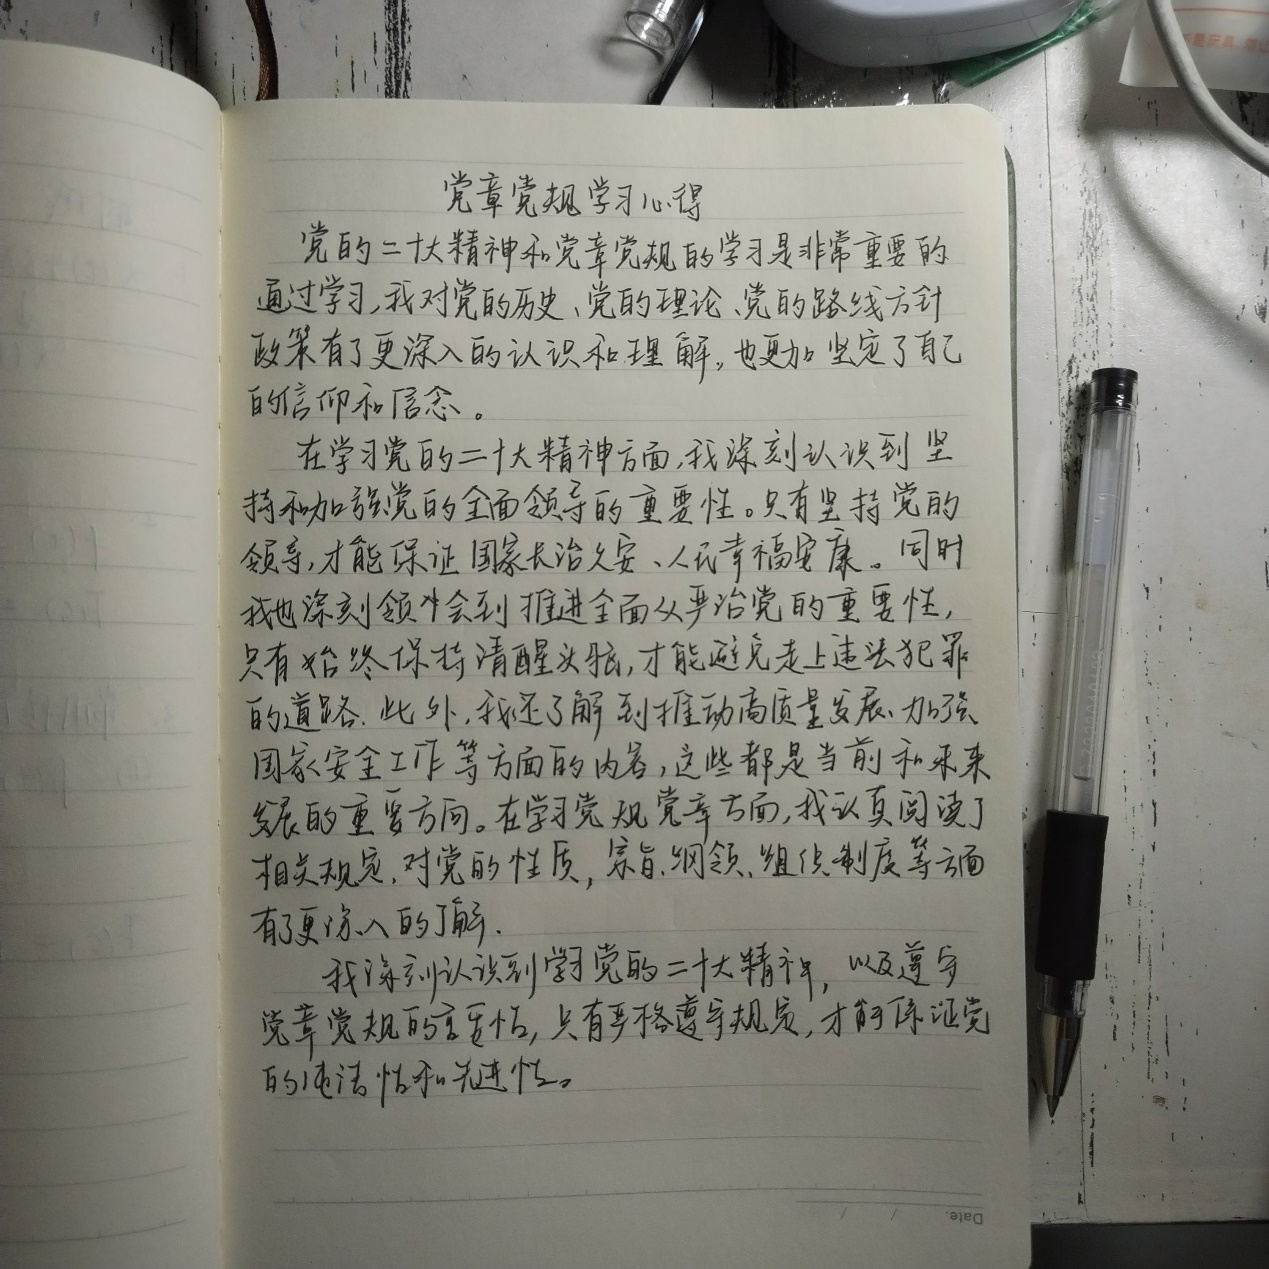 党章党规学习心得
党的二十大精神和党章党规的学习是非常重要的
通过学习,我对党的历史、党的理论、党的路线方针
政策有了更深入的认识和理解,也更加坚定了自己
的信仰和信念。
在学习党的二十大精神方面,我深刻认识到坚
持和加强党的全面领导的重要性。只有坚持党的
领导,才能保证国家长治久安、人民幸福安康。同时
我也深刻领会到推进全面从严治党的重要性,
只有始终保持清醒头脑,才能避免走上违法犯罪
的道路.此外,我还了解到推动高质量发展、加强
国家安全工作等方面的内容,这些都是当前和未来
发展的重要方向。在学习党规党章方面,我认真阅读了
相关规定,对党的性质,宗旨、纲领、组织制度等方面
有了更深入的了解.
我深刻认识到学习党的二十大精神,以及遵守
党章党规的重要性,只有严格遵守规定,才能保证党
的纯洁性和先进性。
Date.